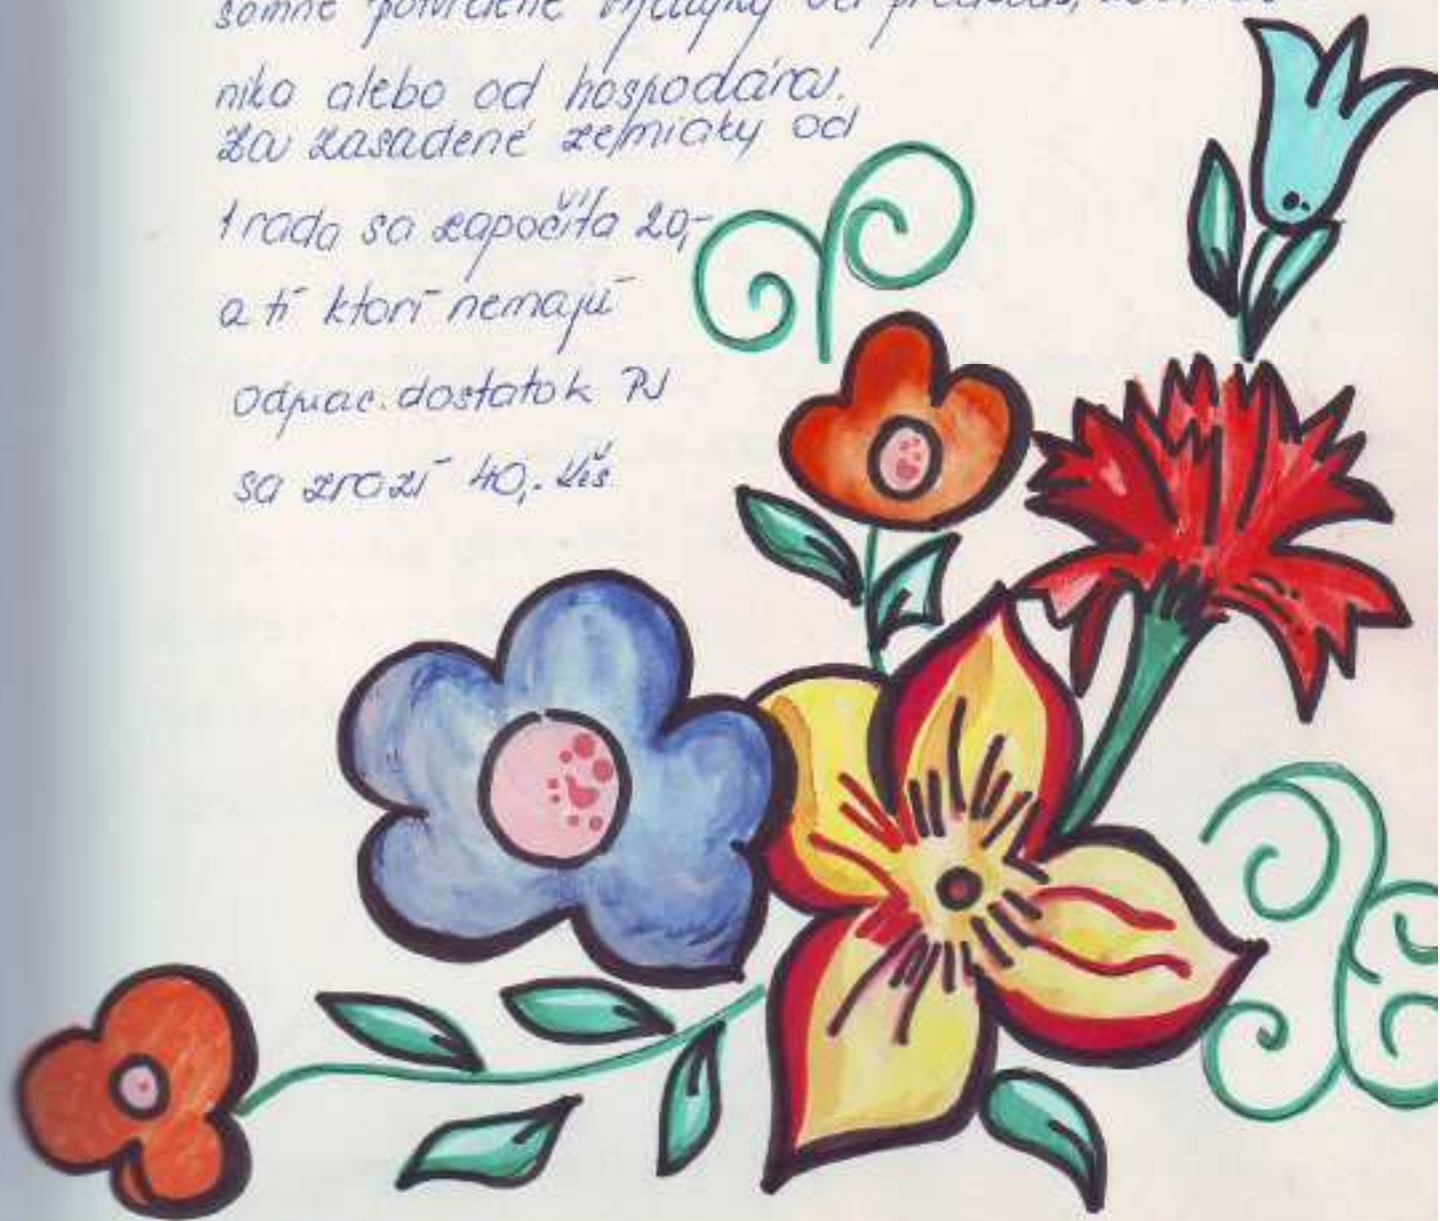 somne potvrdené výdajky od
nika alebo od hospodára.
Za zasadené zemiaky od
1 rada sa započíta 20,-
a tí ktorí nemajú
odprac. dostatok PJ
sa zrazí 40,- Kčs